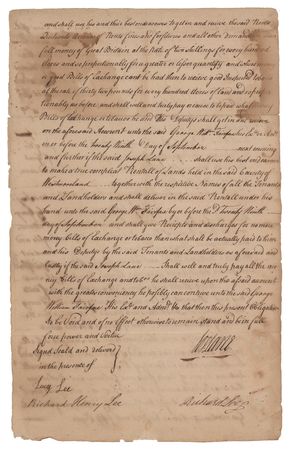 and shall use his and their best endeavours to get in and receive the said Rents
of Rents fines and forfeitures and all other
full money of Great Britain at the Rate of two Shillings for every hundred
Acres and so proportionably for a greater or lesser quantity and
good Bills of Exchange cant be had then to receive good Tobacco
at the rate of thirty two pounds for every hundred Acres of land and so
tionably as before and shall well and truly pay or cause to be paid what
Bills of Exchange or tobacco he and his Deputys shall get in and receive
on the aforesaid Account unto the said George Wm Fairfax his
on or before the twenty Ninth Day of September next ensuing
and further if the said Joseph Lane shall use his best endeavours
to make a true compleat Rentall of Lands held in the said County of
Westmoreland together with the respective Names of all the Tenants
and Landholders and shall deliver in the said Rentall under his
hand unto the said George Wm Fairfax by or before the twenty Ninth
day of September and shall give Receipts and discharges for no more
money bills of Exchange or tobacco than what shall be actually paid to him
and his Deputys by the said Tenants and Landholders as aforesaid and
Lastly if the said Joseph Lane Shall well and truly pay all the mo
ney bills of Exchange and he shall receive upon the aforesaid amount
with the greatest conveniency he possibly can contrive unto the said George
William Fairfax His and that then this present Obligation
to be Void and of no Effect otherwise to remain stand and be in full
force power and Virtue
Signed Seald and deliverd
in the presence of
Lucy Lee
Richard Henry Lee
Richard Lee